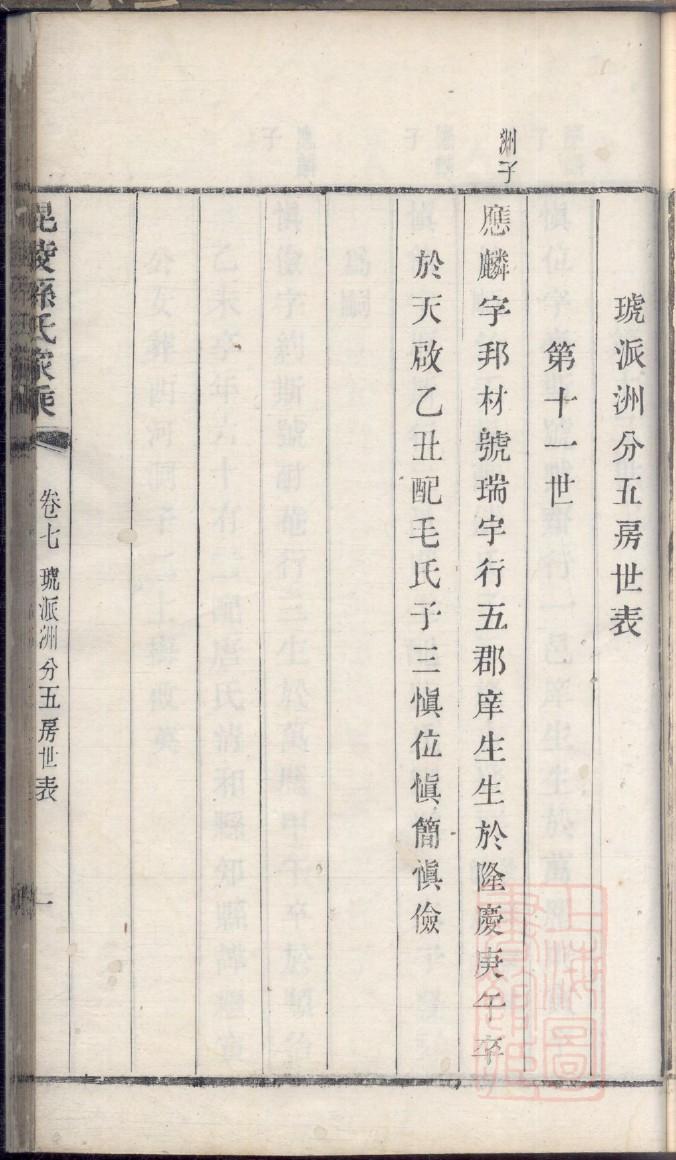 琥派洲分五房世表
第十一世
洲子
應麟字邦材號瑞宇行五郡庠生生於隆慶庚午卒
於天啟乙丑配毛氏子三慎位慎簡慎儉
毘陵孫氏家乘
卷七 琥派洲分五房世表
一
上海圖書館藏